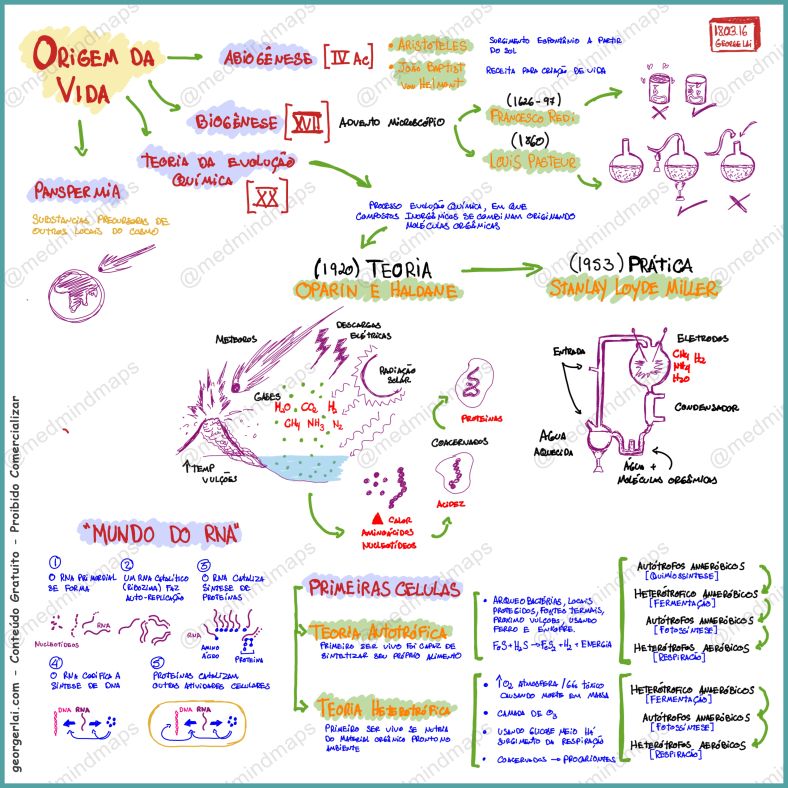 18.03.16
GEORGE LAI
ORIGEM DA
VIDA
ABIOGÊNESE [IV AC]
• ARISTÓTELES
SURGIMENTO ESPONTÂNIO A PARTIR
DO SOL
• JOÃO BAPTIST
VAN HELMONT
RECEITA PARA CRIAÇÃO DE VIDA
BIOGÊNESE [XVII] ADVENTO MICROSCÓPIO
(1626-97)
FRANCESCO REDI
(1860)
LOUIS PASTEUR
TEORIA DA EVOLUÇÃO
QUÍMICA [XX]
PROCESSO EVOLUÇÃO QUÍMICA, EM QUE
COMPOSTOS INORGÂNICOS SE COMBINAM ORIGINANDO
MOLÉCULAS ORGÂNICAS
PANSPERMIA
SUBSTÂNCIAS PRECURSORAS DE
OUTROS LOCAIS DO COSMO
(1920) TEORIA
OPARIN E HALDANE
(1953) PRÁTICA
STANLAY LOYDE MILLER
METEOROS
DESCARGAS
ELÉTRICAS
RADIAÇÃO
SOLAR
GASES
H2O CO2 H2
CH4 NH3 N2
↑TEMP
VULÇÕES
PROTEINAS
COACERVADOS
ACIDEZ
▲ CALOR
AMINOÁCIDOS
NUCLEOTÍDEOS
ENTRADA
ELETRODOS
CH4 H2
NH4
H2O
CONDENSADOR
ÁGUA
AQUECIDA
ÁGUA +
MOLÉCULAS ORGÂNICAS
"MUNDO DO RNA"
1
O RNA PRIMORDIAL
SE FORMA
NUCLEOTÍDEOS
2
UM RNA CATALÍTICO
(RIBOZIMA) FAZ
AUTO-REPLICAÇÃO
3
O RNA CATALIZA
SÍNTESE DE
PROTEÍNAS
RNA
AMINO
ÁCIDO
PROTEÍNA
4
O RNA CODIFICA A
SÍNTESE DE DNA
DNA RNA
5
PROTEÍNAS CATALIZAM
OUTRAS ATIVIDADES CELULARES
DNA RNA
PRIMEIRAS CELULAS
TEORIA AUTOTRÓFICA
PRIMEIRO SER VIVO FOI CAPAZ DE
SINTETIZAR SEU PRÓPRIO ALIMENTO
• ARQUEOBACTÉRIAS, LOCAIS
PROTEGIDOS, FONTES TERMAIS,
PRÓXIMO VULCÕES, USANDO
FERRO E ENXOFRE.
FeS+H2S → FeS2 + H2 + ENERGIA
AUTÓTROFOS ANAERÓBICOS
[QUIMIOSSÍNTESE]
HETERÓTROFICO ANAERÓBICOS
[FERMENTAÇÃO]
AUTÓTROFOS ANAERÓBICOS
[FOTOSSÍNTESE]
HETERÓTROFOS AERÓBICOS
[RESPIRAÇÃO]
TEORIA HETEROTRÓFICA
PRIMEIRO SER VIVO SE NUTRIA
DO MATERIAL ORGÂNICO PRONTO NO
AMBIENTE
• ↑O2 ATMOSFERA / GÁS TÓXICO
CAUSANDO MORTE EM MASSA
• CAMADA DE O3
• USANDO GLICOSE MEIO HÁ
SURGIMENTO DA RESPIRAÇÃO
• COACERVADOS → PROCARIONTES
HETERÓTROFICO ANAERÓBICOS
[FERMENTAÇÃO]
AUTÓTROFOS ANAERÓBICOS
[FOTOSSÍNTESE]
HETERÓTROFOS AERÓBICOS
[RESPIRAÇÃO]
georgerlai.com - Conteúdo Gratuito - Proibido Comercializar
@medmindmaps